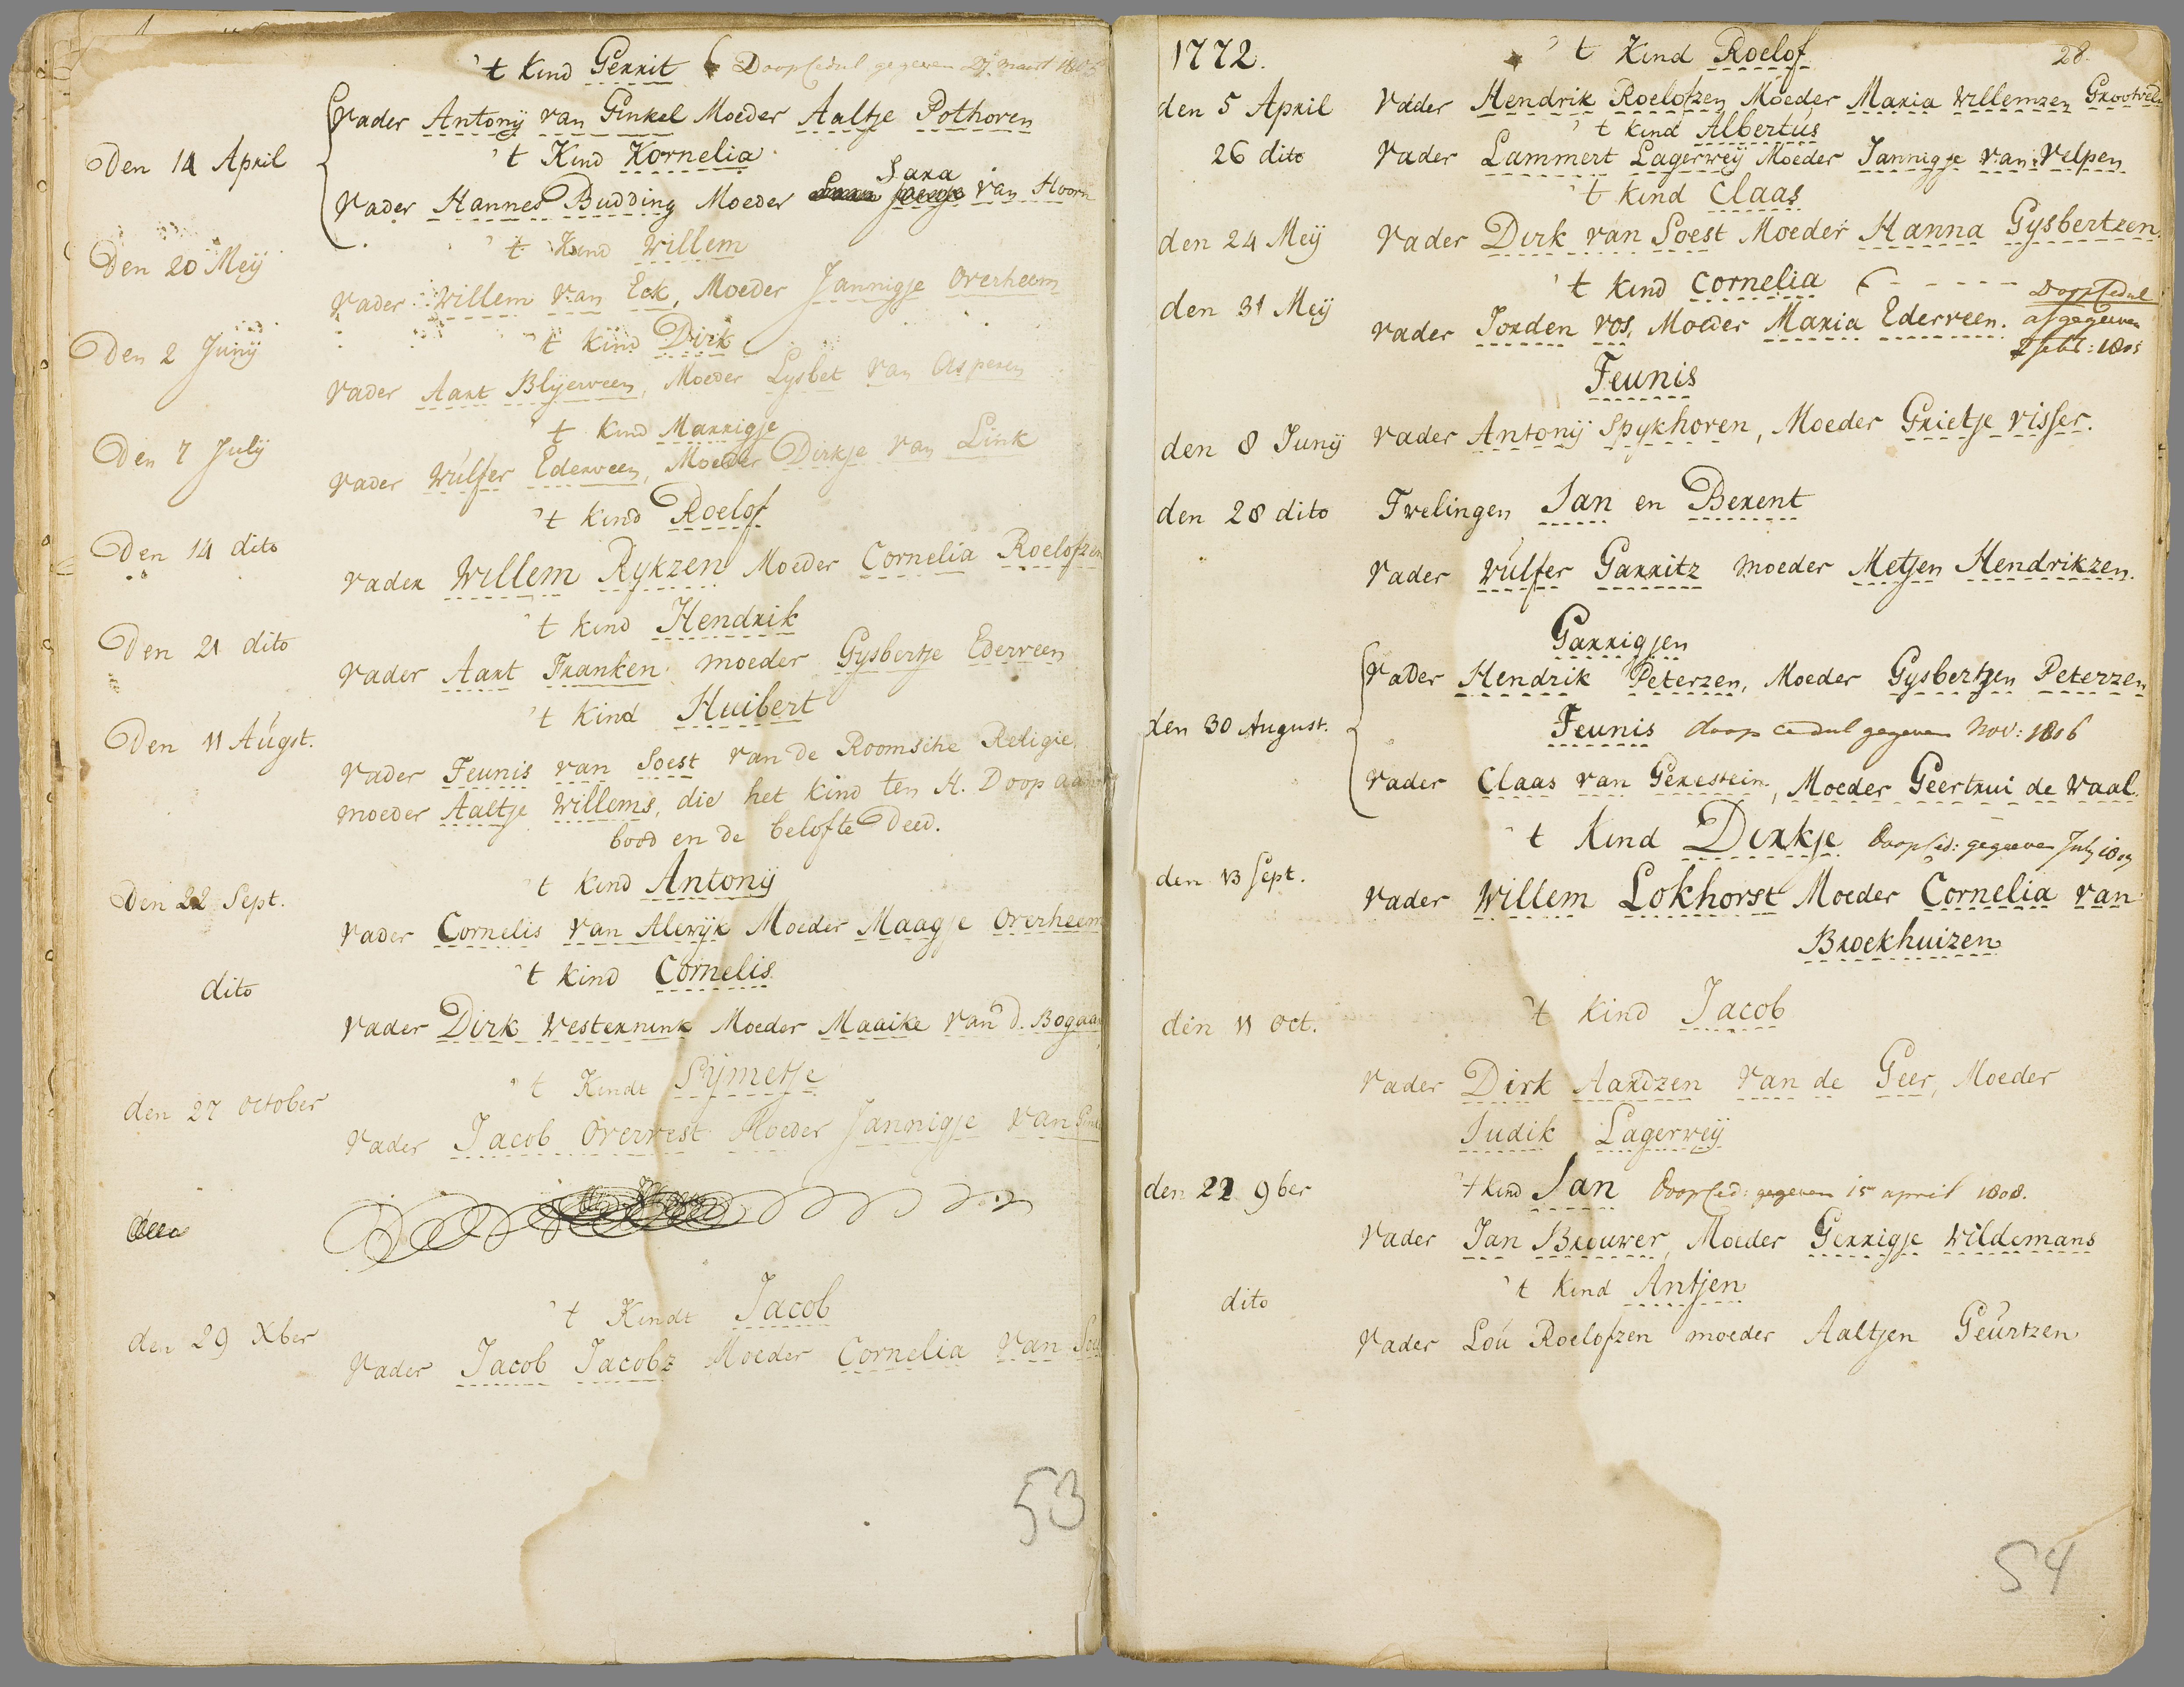 't Kind Gerrit Doopcedul gegeven 27 maart 1805
Vader Antonij van Ginkel Moeder Aaltje Pothoven
Den 14 April 't Kind Kornelia
Vader Hannes Budding Moeder Sara van Hoorn
Den 20 Meij 't Kind Willem
Vader Willem van Eck, Moeder Jannigje Overheem
Den 2 Junij 't Kind Dirk
Vader Aart Blijerveen, Moeder Lysbet van Asperen
Den 7 Julij 't Kind Marrigje
Vader Wulfer Ederveen, Moeder Dirkje van Link
Den 14 dito 't Kind Roelof
Vader Willem Rykzen Moeder Cornelia Roelofzen
Den 21 dito 't Kind Hendrik
Vader Aart Franken moeder Gysbertje Ederveen
Den 11 Augst. 't Kind Huibert
Vader Teunis van Soest van de Roomsche Religie
moeder Aaltje Willems, die het kind ten H. Doop aan
bood en de belofte Deed.
Den 22 Sept. 't Kind Antonij
Vader Cornelis van Alewijk Moeder Maagje Overheem
dito 't kind Cornelis
Vader Dirk Westernink Moeder Maaike van d. Bogaa
den 27 october 't Kindt Sijmetje
Vader Jacob Overvest Moeder Jannigje van
den 29 Xber 't Kindt Jacob
Vader Jacob Jacobz Moeder Cornelia van
53
1772. 't Kind Roelof 28.
den 5 April Vader Hendrik Roelofzen Moeder Maria Willemzen Grootveld
't kind Albertus
26 dito Vader Lammert Lagerweij Moeder Jannigje van Velpen
't kind Claas
den 24 Meij Vader Dirk van Soest Moeder Hanna Gysbertzen
't kind Cornelia - - - - - Doopcedul
den 31 Meij Vader Jorden Vos, Moeder Maria Ederveen. afgegeeven
2 febr: 1805
Teunis
den 8 Junij Vader Antonij Spykhoven, Moeder Grietje Visser.
den 28 dito Twelingen Jan en Berent
Vader Wulfer Garritz moeder Metjen Hendrikzen.
Garrigjen
Vader Hendrik Peterzen, Moeder Gysbertjen Peterzen
den 30 August. Teunis doop cedul gegeven Nov: 1806
Vader Claas van Gerestein, Moeder Geertrui de Waal
't Kind Dirkje Doopced: gegeeven July 1809
den 13 Sept. Vader Willem Lokhorst Moeder Cornelia van
Broekhuizen
den 11 Oct. 't kind Jacob
Vader Dirk Aardzen van de Geer, Moeder
Judik Lagerweij
den 22 9ber 't Kind Jan Doopced: gegeven 15 april 1808.
Vader Jan Brouwer, Moeder Gerrigje Wildemans
dito 't kind Antjen
Vader Lou Roelofzen moeder Aaltjen Geurtzen
54